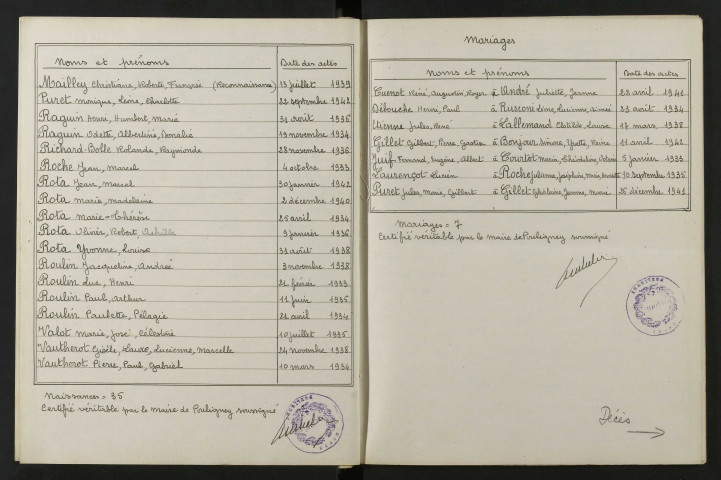 Noms et prénoms Date des actes
Mailley Christiane, Roberte, Françoise (Reconnaissance) 13 juillet 1939
Puret Monique, Léone, Charlotte 22 septembre 1942
Raguin Henri, Humbert, Marie 31 août 1936
Raguin Odette, Albertine, 19 novembre 1934
Richard-Bolle Rolande, Raymonde 28 novembre 1936
Roche Jean, Marcel 4 octobre 1933
Rota Jean, Marcel 30 janvier 1942
Rota Maria, Madeleine 2 décembre 1940
Rota Marie-Thérèse 25 avril 1934
Rota Olivier, Robert, Achille 9 janvier 1936
Rota Yvonne, Louise 31 août 1938
Roulin Jacqueline, Andrée 3 novembre 1938
Roulin Luc, Henri 21 février 1933
Roulin Paul, Arthur 11 juin 1935
Roulin Paulette, Pélagie 21 avril 1934
Valot Marie, José, Célestine 10 juillet 1935
Vautherot Gisèle, Laure, Lucienne, Marcelle 24 novembre 1938
Vautherot Pierre, Paul, Gabriel 10 mars 1934
Naissances = 35
Certifié véritable par le maire de Pouligney soussigné
Mariages
Noms et prénoms Date des actes
Cuenot René, Augustin, Roger à André Juliette, Jeanne 28 avril 1941
Débouche Henri, Paul à Rusconi Lucienne, Aimée 23 août 1934
Etienne Jules, René à Lallemand Clotilde, Louise 17 mars 1938
Gillet Gilbert, Pierre, Gaston à Bonjour Simone, Yvette, Reine 11 avril 1942
Juif Fernand, Eugène, Albert à Courlot Maria, 5 janvier 1933
Laurençot Lucien à Roche Julienne, Joséphine, Marie, 10 septembre 1935
Puret Jules, Marie, Guilbert à Gillet Ghislaine, Jeanne, Marie 26 décembre 1941
Mariages = 7
Certifié véritable par le maire de Pouligney soussigné
Décès